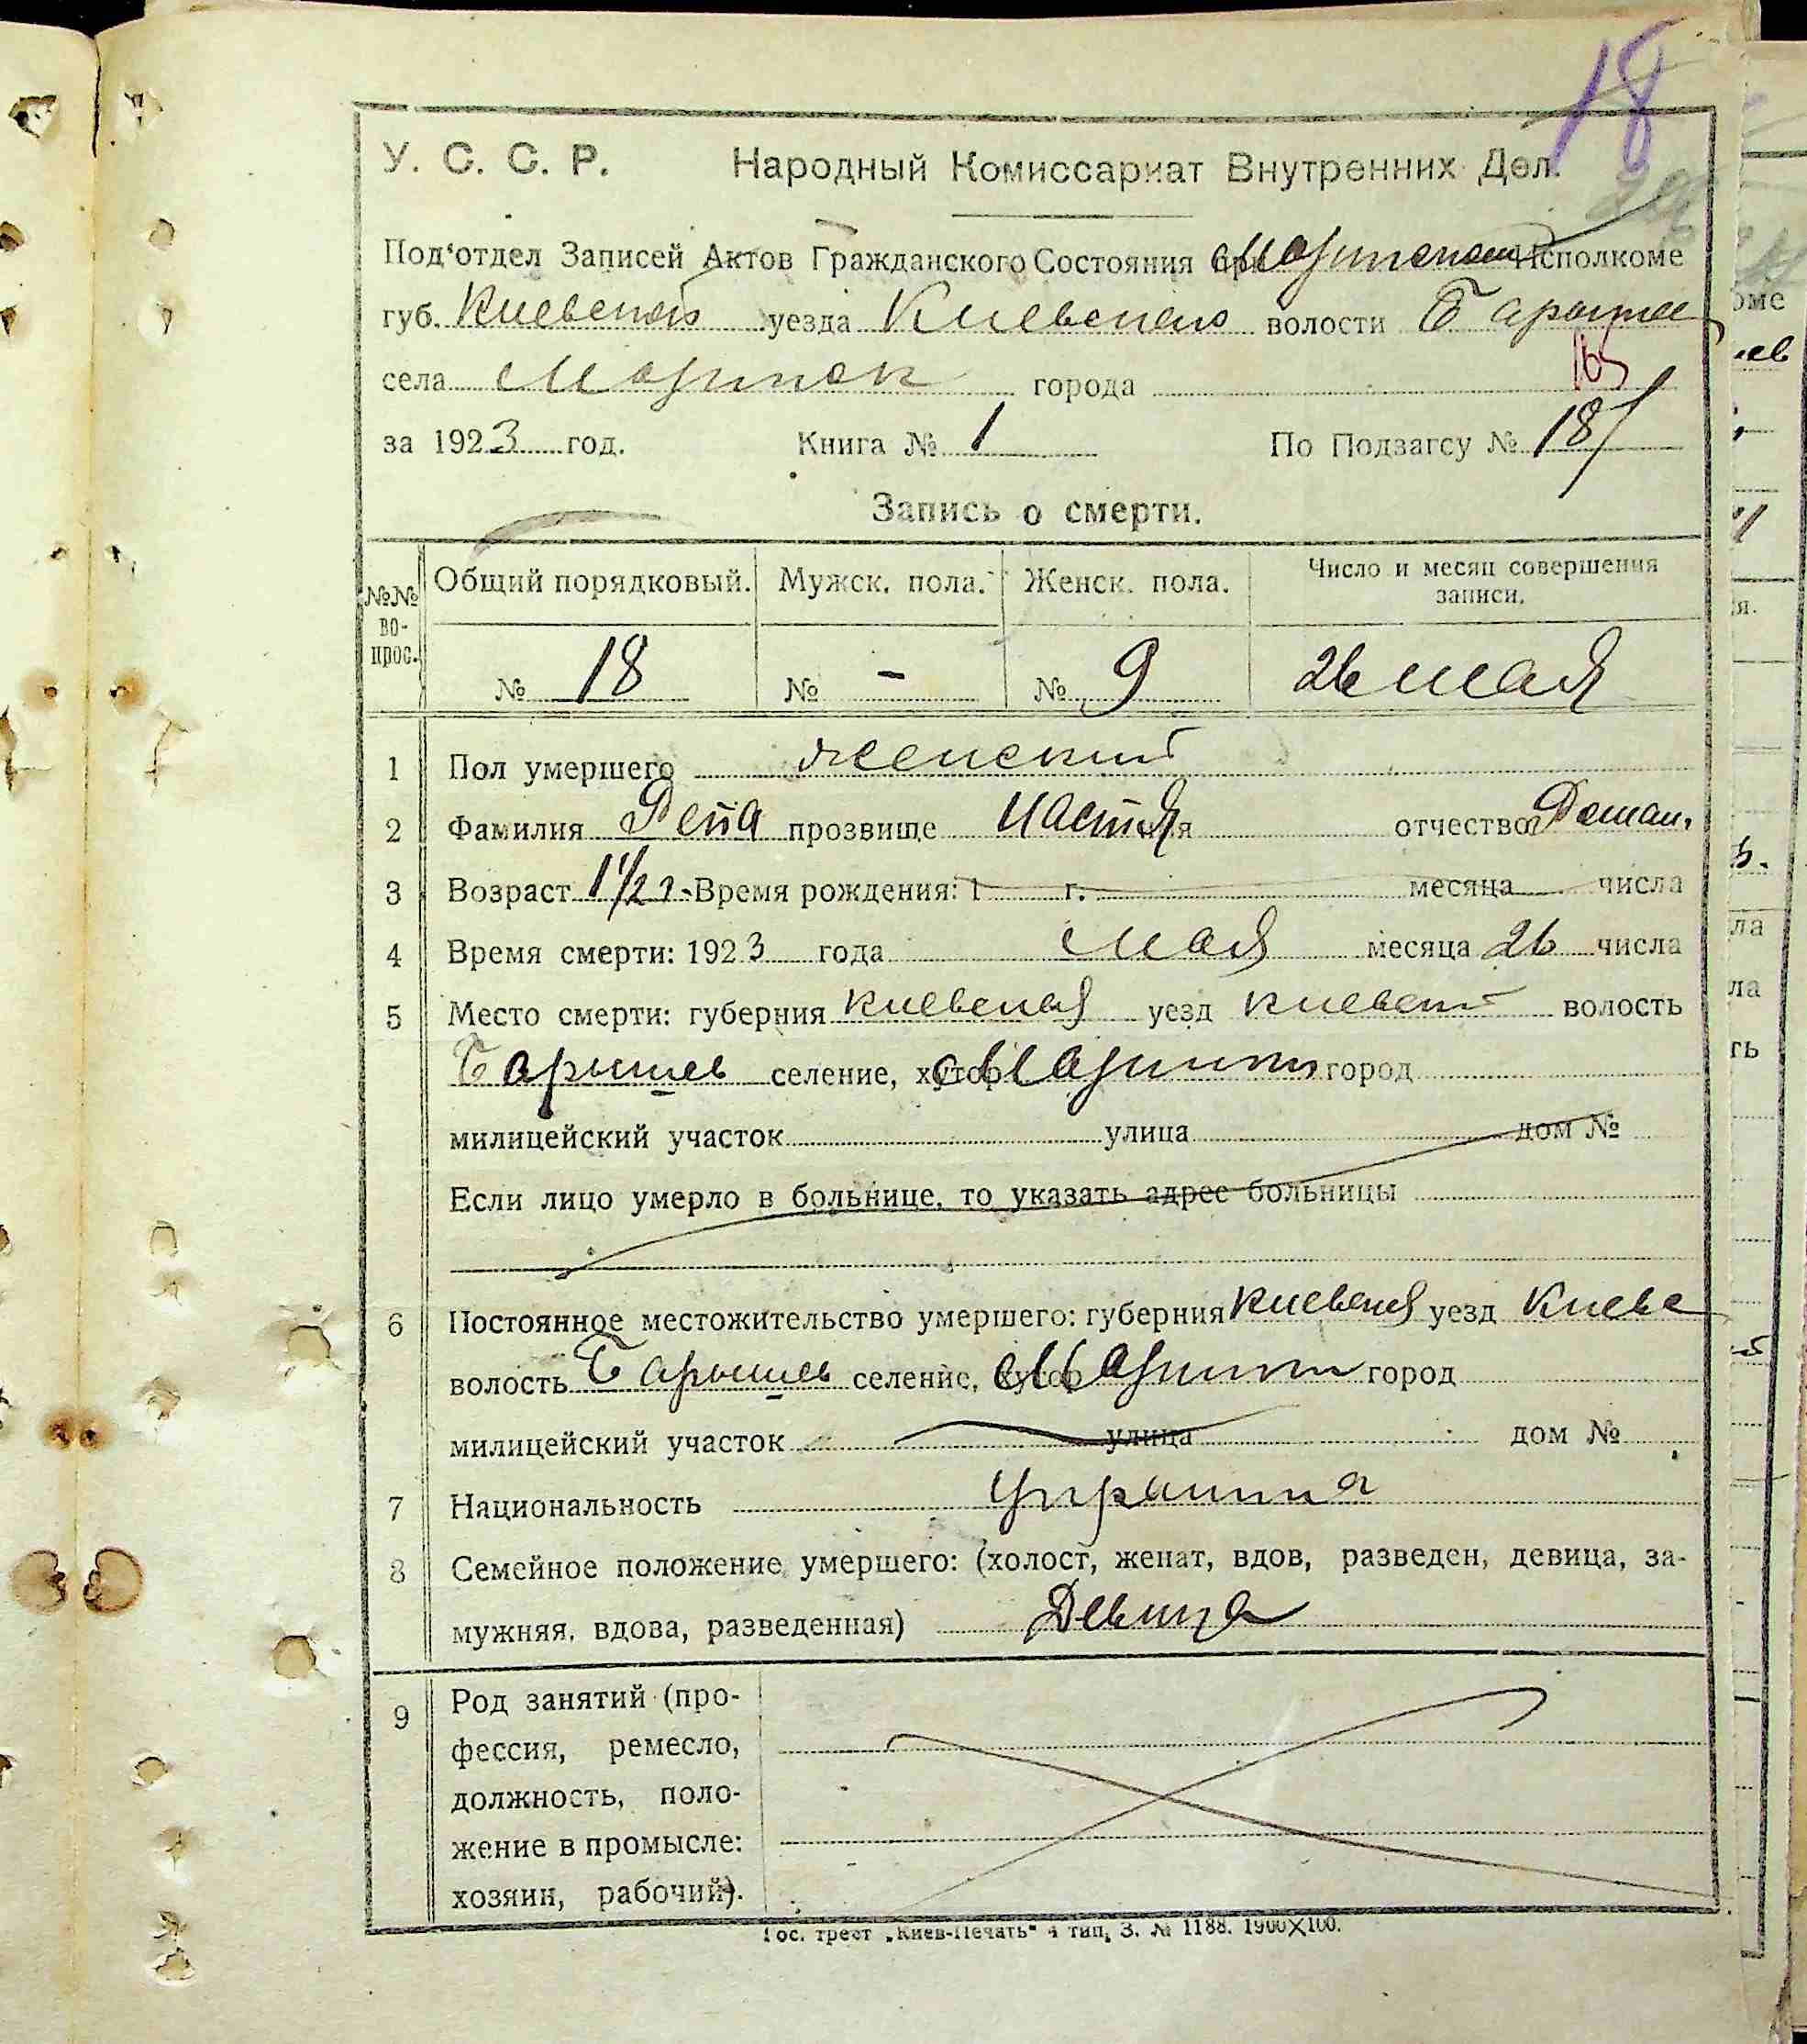 18
У. С. С. Р. Народный Комиссариат Внутренних Дел.
Под‘отдел Записей Актов Гражданского Состояния при Исполкоме
губ. Киевской уезда Киевского волости Барыше
села города
165
за 1923 год. Книга № 1 По Подзагсу № 18
Запись о смерти.
№№ во-прос. Общий порядковый. Мужск. пола. Женск. пола. Число и месяц совершения записи.
№ 18 № - № 9 26 мая
1 Пол умершего женский
2 Фамилия Репа прозвище Настя отчество
3 Возраст 1 1/2 г. Время рождения: 1 г. месяца числа
4 Время смерти: 1923 года мая месяца 26 числа
5 Место смерти: губерния Киевская уезд Киевский волость
Барышев селение, хутор город
милицейский участок улица дом №
Если лицо умерло в больнице, то указать адрес больницы
6 Постоянное местожительство умершего: губерния Киевская уезд Киевс
волость Барышев селение, хутор город
милицейский участок улица дом №
7 Национальность Украинка
8 Семейное положение умершего: (холост, женат, вдов, разведен, девица, за-
мужняя, вдова, разведенная) Девица
9 Род занятий (про-
фессия, ремесло,
должность, поло-
жение в промысле:
хозяин, рабочий).
Гос. трест „Киев-Печать“ 4 тип. З. № 1188. 1900×100.